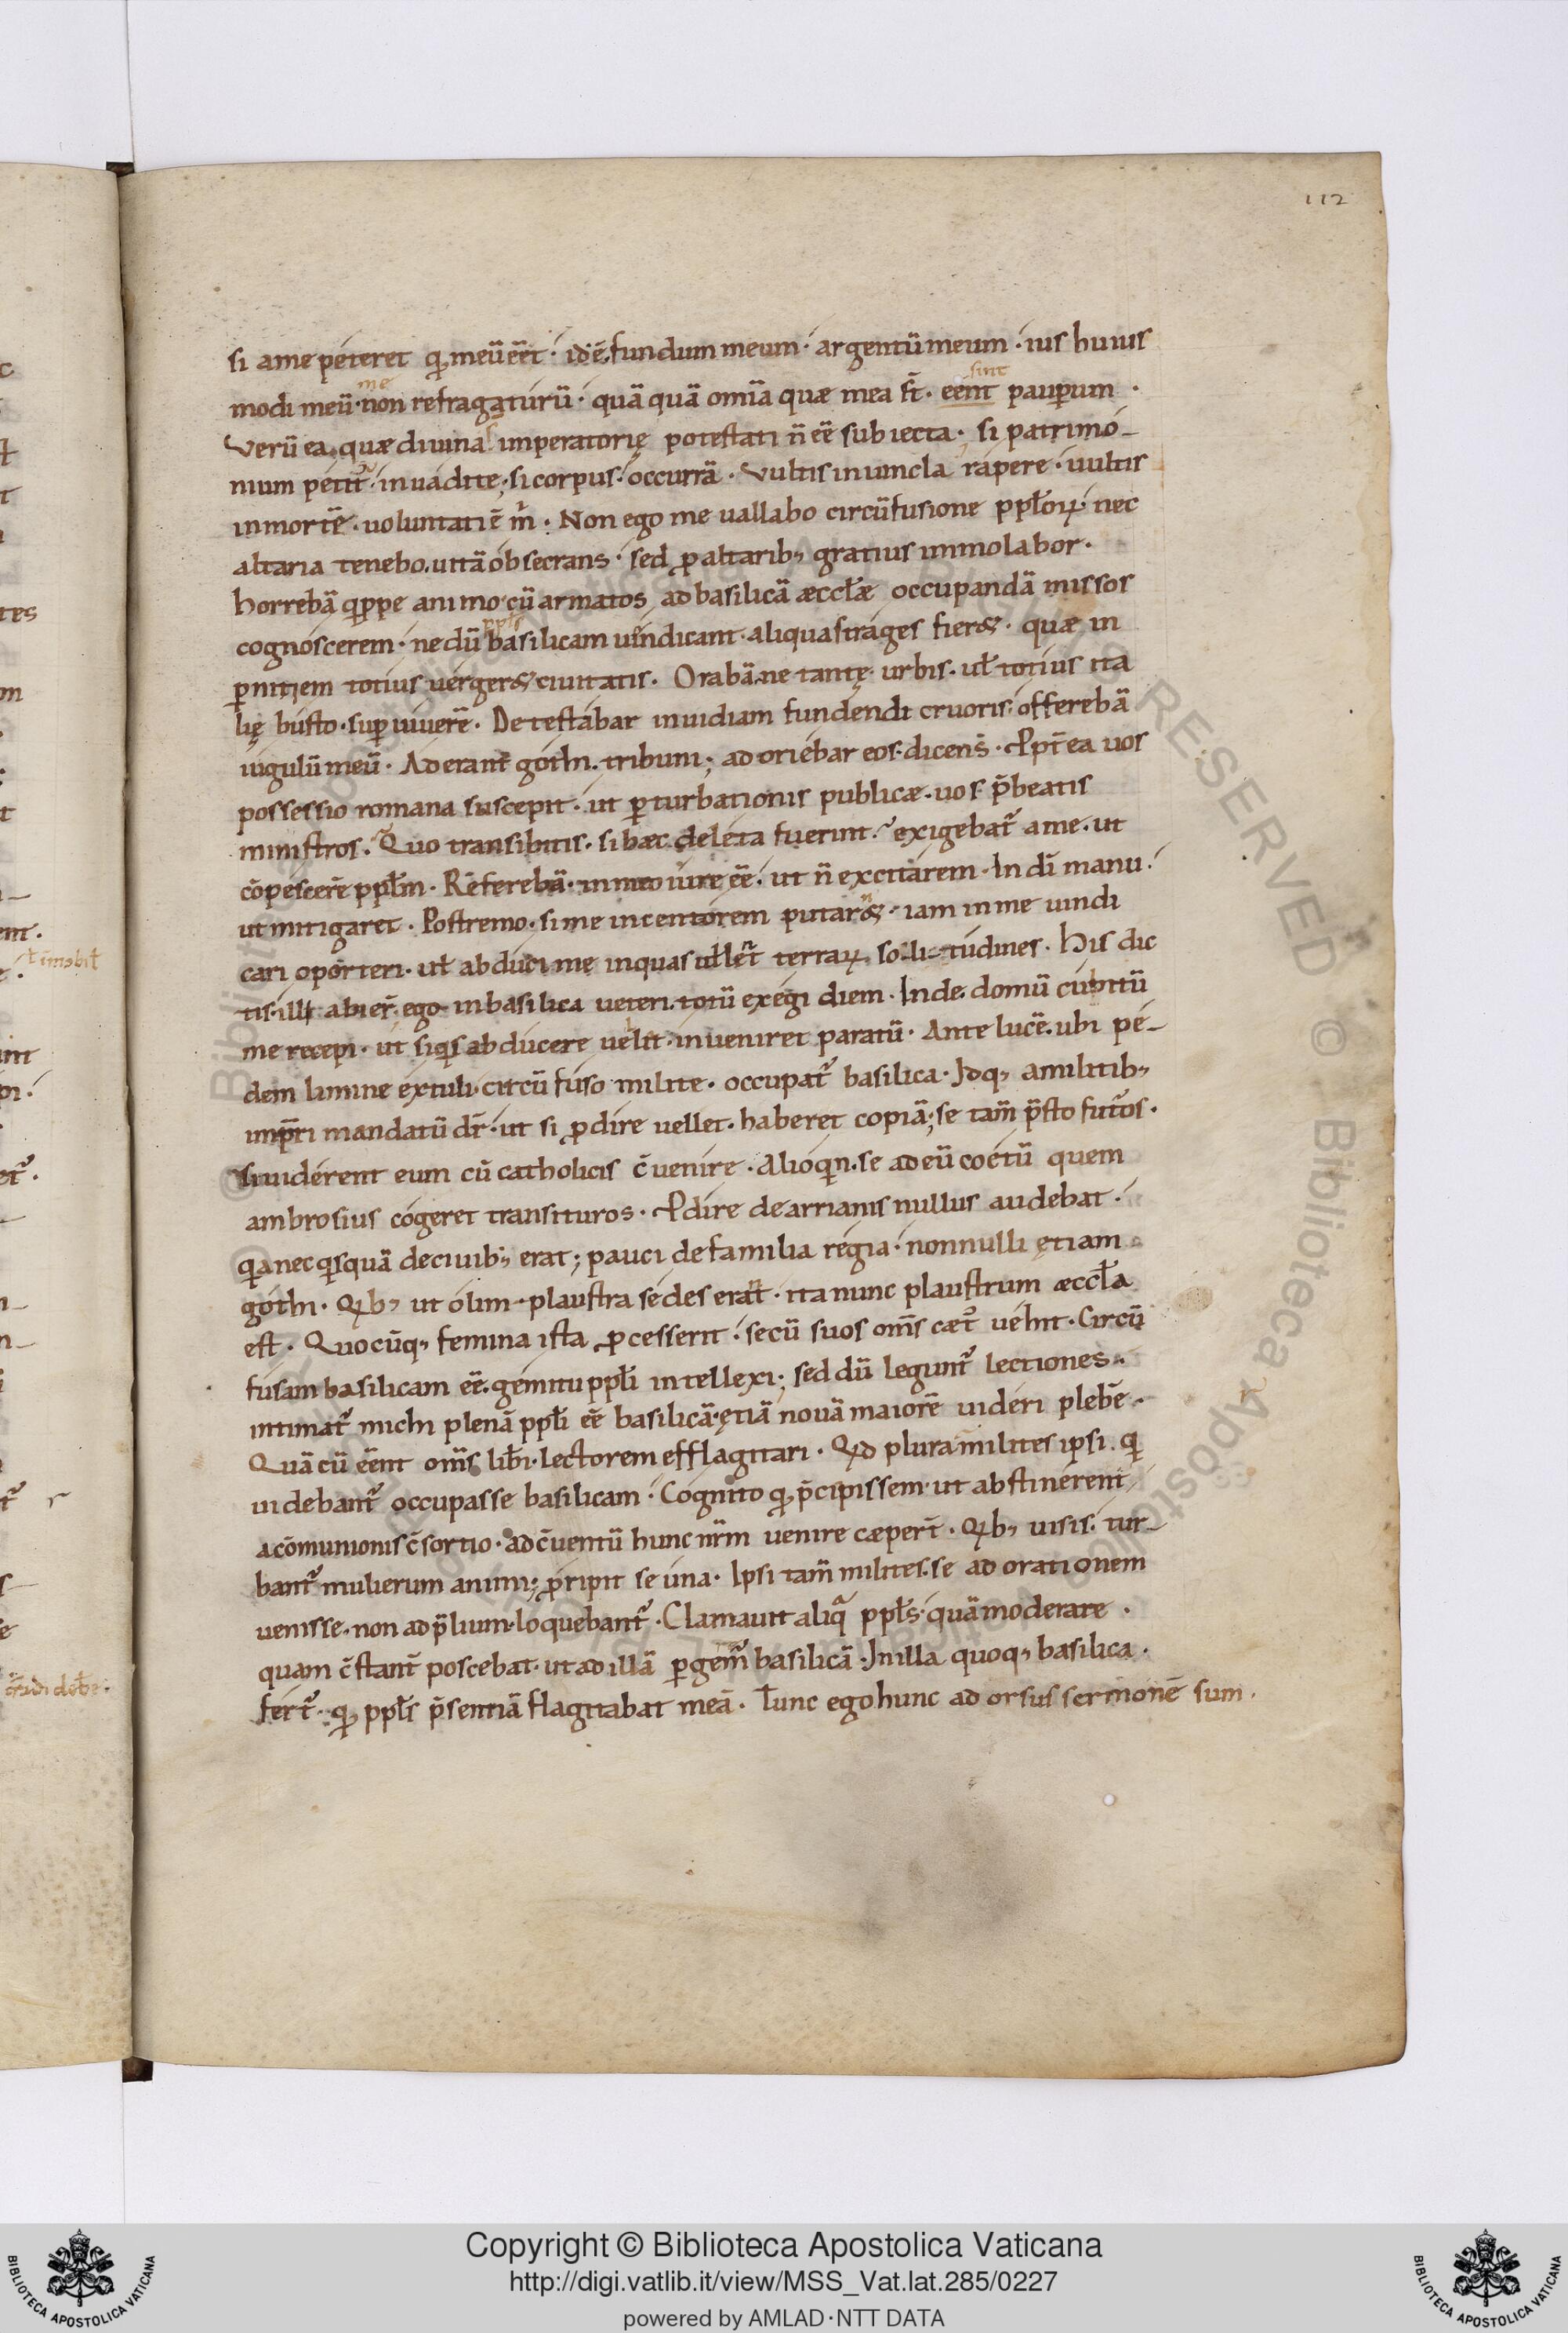 112
si ame peteret qđ meū eēt· id ē, fundum meum· argentū meum· ius huius
modi meū· me non refragaturū· quā quā omīa quæ mea st̄· eent sint pauꝑum·
Verū ea, quæ diuina s̄ imperatorię potestati n̄ eē subiecta· si patrimo-
nium petit᷑· inuadite; si corpus· occurrā· Vultis in uincla rapere· uultis
in mortē· uoluntati ē m̄· Non ego me uallabo circūfusione ppłoꝝ· nec
altaria tenebo. uitā obsecrans· sed ꝓ altarib; gratius immolabor·
horrebā qͥppe animo· cū armatos ad basilicā æccłæ occupandā missos
cognoscerem· ne dū ppłs basilicam uindicant· aliqua strages fier&· quæ in
ꝑnitiem totius uerger& ciuitatis· Orabā· ne tantę urbis· uł totius ita
lię busto· suꝑuiuerē· Detestabar inuidiam fundendi cruoris· offerebā
iugulū meū· Aderant gothi· tribuni; adoriebar eos· dicens· Ꝓpt̄ ea uos
possessio romana suscepit· ut ꝑturbationis publicæ· uos p̄beatis
ministros· Quo transibitis· si hæc deleta fuerint? exigebat᷑ a me· ut
cōpescerē ppłm· Referebā· in meo iure eē· ut n̄ excitarem· In dī manu·
ut mitigaret· Postremo· si me incentorem putar&· iam in me uindi
cari oporteri· uł abduci me in quas uellet᷑ terraꝝ so-li-tudines· His dic
tis· illi abier̄· ego in basilica ueteri· totū exegi diem· Inde· domū cubitū
me recepi· ut siqͥs abducere uelit· inueniret paratū· Ante lucē· ubi pe-
dem limine extuli· circū fuso milite· occupat᷑ basilica· Idq; a militib;
imp̄ri mandatū dr̄· ut si ꝓdire uellet· haberet copiā; se tam̄ p̄sto futos·
si uiderent eum cū catholicis c̄uenire· Alioqͥn· se ad eū coetū quem
ambrosius cogeret transituros· Ꝓdire de arrianis nullus audebat·
qͥa nec qͥsquā de ciuib; erat; pauci de familia regia· nonnulli ętiam
gothi· Qͥb; ut olim· plaustra sedes erat· ita nunc plaustrum æccła
est· Quocūq; femina ista ꝓcesserit· secū suos om̄s cæt᷑ uehit· Circū
fusam basilicam eē· gemitu ppłi intellexi; sed dū legunt᷑ lectiones·
intimat᷑ michi plenā ppłi eē basilicā· ętiā nouā maiorē uideri plebē·
Quā cū eēnt om̄s libi· lectorem efflagitari· Qͥd plura· milites ipsi· qͥ
uidebant᷑ occupasse basilicam· Cognito qđ p̄cipissem· ut abstinerent
a cōmunionis c̄sortio· ad c̄uentū hunc nr̄m uenire cæper̄t· Qͥb; uisis· tur-
bant᷑ mulierum animi; ꝓripit se una· Ipsi tam̄ milites· se ad orationem
uenisse· non ad p̄lium· loquebant᷑· Clamauit aliqͣ ppłs· quā moderate·
quam c̄stant᷑ poscebat· ut ad illā ꝑgem᷑ basilicā· In illa quoq; basilica·
fert᷑· qđ ppłs p̄sentiā flagitabat meā· Tunc ego hunc adorsus sermonē sum·
Copyright © Biblioteca Apostolica Vaticana
http://digi.vatlib.it/view/MSS_Vat.lat.285/0227
powered by AMLAD·NTT DATA